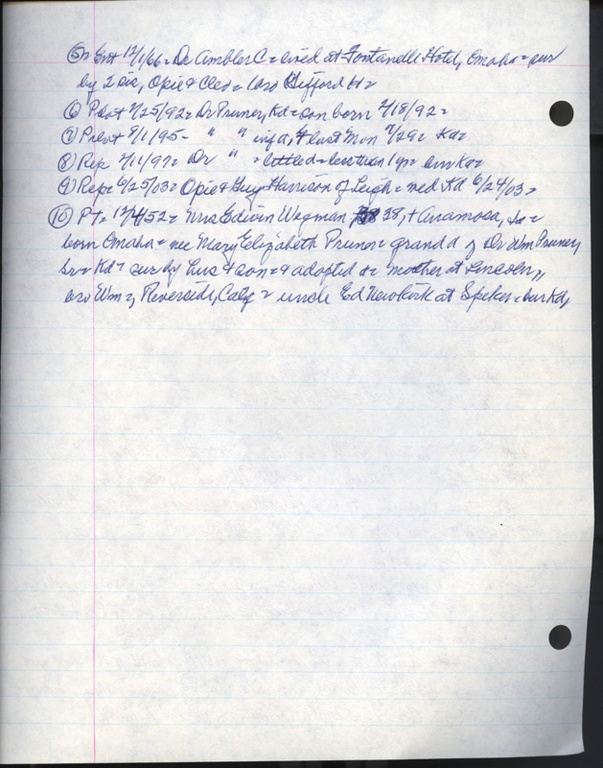 ⑤ Ent 12/1/66 = Dr Ambler C = lived at Fontanelle Hotel, Omaha = sur
by 2 sis, Opie & Cleo = Gifford
⑥ Pilot 2/25/92 = Dr Pruner, Kd = son born 2/18/92 =
⑦ Pilot 8/1/95 - " " inf d, + last Mon 7/29 = Kd =
⑧ Rep 2/11/97 = Dr " =
⑨ Rep = 6/25/03 = Opie & Guy Harrison of Leigh = med Kd 6/24/03 =
⑩ Pt = 12/4/52 = Mrs Edwin Wegman 38, + Anamosa, Ia =
born Omaha = nee Mary Elizabeth Pruner = grand d of Dr Wm Pruner,
Sr = Kd = sur by hus & son = & adopted = mother at Lincoln,
bro Wm of Riverside, Calif = uncle Ed Newkirk at = bur Kd,